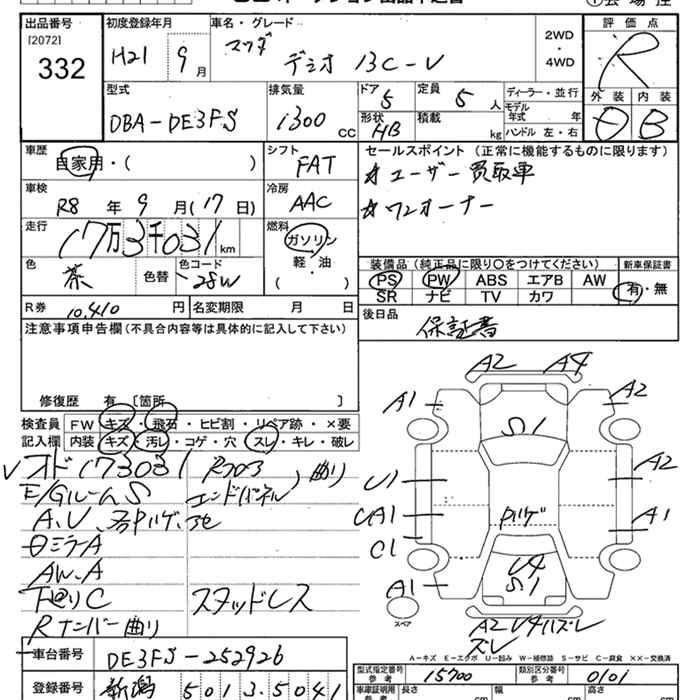 出品番号 初度登録年月 車名・グレード 2WD ・ 4WD 評価点
[2072] 332 H21年 9月 マツダ デミオ 13C-V R
型式 排気量 ドア 定員 ディーラー・並行 外装 内装
DBA-DE3FS 1300 CC 5 5 人 モデル年式 年
形状 HB 積載 kg ハンドル 左・右 B
車歴 シフト セールスポイント (正常に機能するものに限ります)
自家用・( ) FAT ☆ユーザー買取車
車検 冷房
R8 年 9 月(17 日) AAC ☆ワンオーナー
走行 燃料
17万3千031 km ガソリン
色 色替 色コード 軽・油
茶 ( )
装備品 (純正品に限り○をつけてください) 新車保証書
PS PW ABS エアB AW 有・無
SR ナビ TV カワ
R券 10.410 円 名変期限 月 日 後日品
保証書
注意事項申告欄 (不具合内容等は具体的に記入して下さい)
修復歴 有 〔箇所 〕
検査員 FW キズ・飛石・ヒビ割・リペア跡・×要
記入欄 内装 キズ・汚レ・コゲ・穴・スレ・キレ・破レ
オド173031 Rフロア 曲り
E/GルームS エンドパネル
A.U
ミラーA
AW.A
下回りC スタッドレス
Rナンバー曲り
A2 A4
A1 A2
S1
U1 A2
UA1 A1
C1
A1 U4 S1
スペア
A2 U4 ズレ
ズレ
A-キズ E-エクボ U-凹み W-補修跡 S-サビ C-腐食 XX-交換済
車台番号 DE3FS-252926 型式指定番号 参考 15700 類別区分番号 参考 0101
登録番号 新潟 501 3.5041 車庫証明用 長さ cm 幅 cm 高さ cm